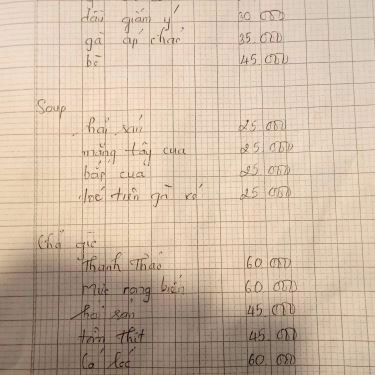 dầu giấm ý 30 000
gà áp chảo 35 000
bò 45 000
Soup
hải sản 25 000
măng tây cua 25 000
bắp cua 25 000
tiên gà xé 25 000
Chả giò
Thanh Thảo 60 000
Mực rong biển 60 000
hải sản 45 000
tôm thịt 45 000
Cá lóc 60 000